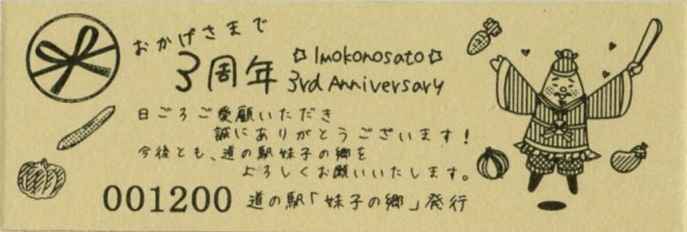 おかげさまで
3周年
☆Imokonosato☆
3rd Anniversary
日ごろご愛顧いただき
誠にありがとうございます!
今後とも、道の駅妹子の郷を
よろしくお願いいたします。
001200 道の駅「妹子の郷」発行